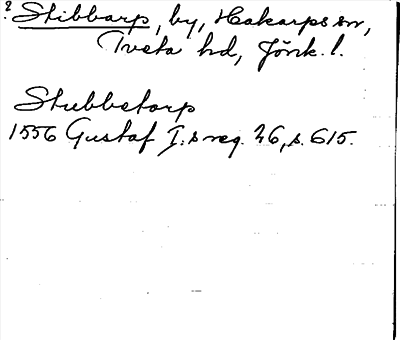 ? Stibbarp, by, Hakarps sn,
Tveta hd, Jönk. l.
Stubbetorp
1556 Gustaf I:s reg. 26, s. 615.